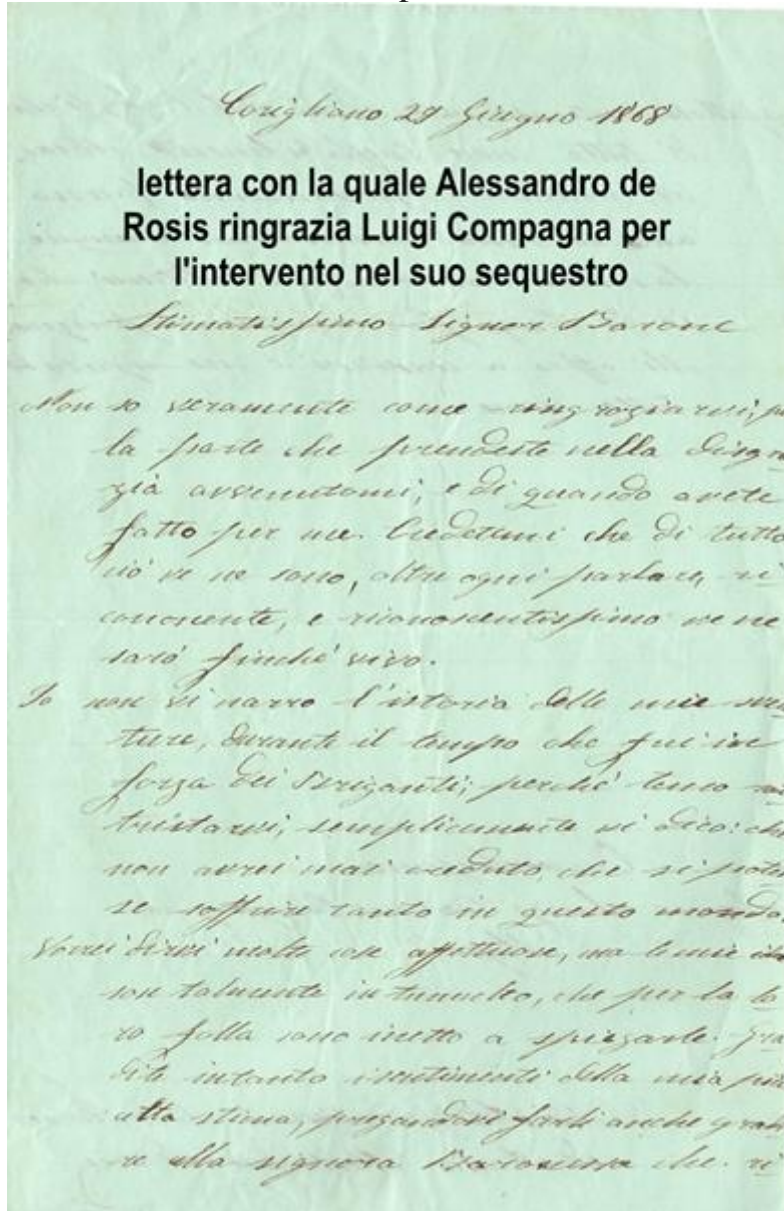 Corigliano 29 Giugno 1868
lettera con la quale Alessandro de
Rosis ringrazia Luigi Compagna per
l'intervento nel suo sequestro
Stimatissimo Signor Barone
Non so veramente come ringraziarvi, pe
la parte che prendeste nella disgra
zia avvenutami; e di quando avete
fatto per me. Credetemi che di tutto
ciò ve ne sono, oltre ogni parlare, ri
conoscente, e riconoscentissimo ve ne
sarò finché vivo.
Io non vi narro l'istoria delle mie sven
ture, durante il tempo che fui in
forza dei Briganti; perché temo
tristarvi, semplicemente vi dico: che
non avrei mai creduto, che si potes
se soffrire tanto in questo mondo.
Vorrei dirvi molte cose affettuose, ma le mie
son talmente in tumulto, che per la lo
ro folla sono inetto a spiegarle. Gra
dite intanto i sentimenti della mia più
alta stima, pregandovi farli anche gradi
re alla signora Baronessa che ri